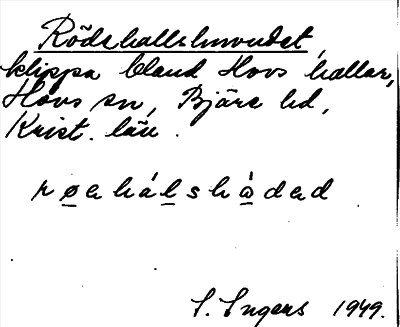 Rödehallshuvudet,
klippa bland Hovs hallar,
Hovs sn, Bjäre hd,
Krist. län.
røehálshȯded
S. Ingers 1949.